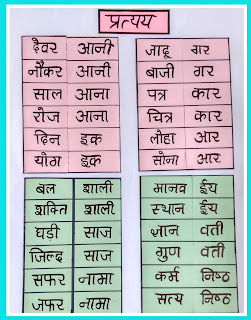 प्रत्यय
देवर आनी
नौकर आनी
साल आना
रोज आना
दिन इक
योग इक
जादू गर
बाजी गर
पत्र कार
चित्र कार
लोहा आर
सोना आर
बल शाली
शक्ति शाली
घड़ी साज
जिल्द साज
सफर नामा
जफर नामा
मानव ईय
स्थान ईय
ज्ञान वती
गुण वती
कर्म निष्ठ
सत्य निष्ठ